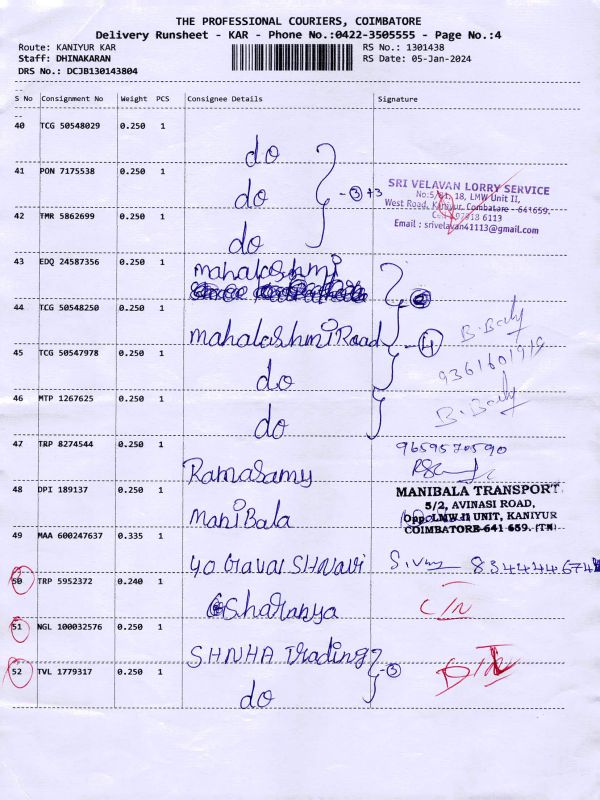 THE PROFESSIONAL COURIERS, COIMBATORE
Delivery Runsheet - KAR - Phone No.:0422-3505555 - Page No.:4
Route: KANIYUR KAR RS No.: 1301438
Staff: DHINAKARAN RS Date: 05-Jan-2024
DRS No.: DCJB130143804
S No Consignment No Weight PCS Consignee Details Signature
40 TCG 50548029 0.250 1
do
41 PON 7175538 0.250 1
do - 3 +3
SRI VELAVAN LORRY SERVICE
18, LMW Unit II,
West Road, Kaniyur, Coimbatore - 641659.
6113
Email : srivelavan41113@gmail.com
42 TMR 5862699 0.250 1
do
43 EDQ 24587356 0.250 1
mahalakshmi
44 TCG 50548250 0.250 1
mahalakshmi Road - 4
B. Bably
9361601919
45 TCG 50547978 0.250 1
do
46 MTP 1267625 0.250 1
do
B. Bably
47 TRP 8274544 0.250 1
9659570590
Ramasamy
48 DPI 189137 0.250 1
ManiBala
MANIBALA TRANSPORT
5/2, AVINASI ROAD,
Opp. LMW II UNIT, KANIYUR
COIMBATORE-641 659. (TN)
49 MAA 600247637 0.335 1
50 TRP 5952372 0.240 1
Sharanya
C/N
51 NGL 100032576 0.250 1
SHNHA Trading - 3
52 TVL 1779317 0.250 1
do